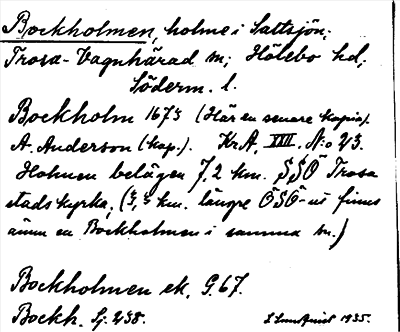 Bockholmen, holme i Saltsjön;
Trosa-Vagnhärad sn; Hölebo hd,
Söderm. l.
Bockholm 1673 (Här en senare kopia).
A. Anderson (kop.). Kr.A. XIII. N:o 23.
Holmen belägen 7,2 km. SSÖ Trosa
stads kyrka, ( km. längre ÖSÖ-ut finns
ännu en Bockholmen i samma sn.)
Bockholmen ek. G.67.
Bockh. Sj. 238.
1935.